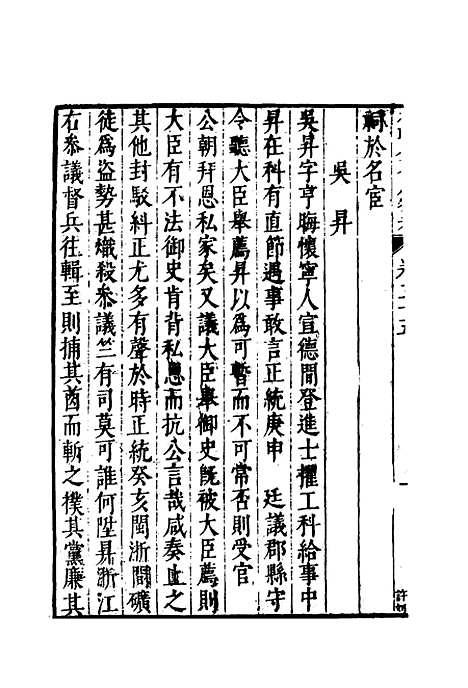 祠於名宦
吳昇
吳昇字亨晦懷寧人宣德間登進士擢工科給事中
昇在科有直節遇事敢言正統庚申 廷議郡縣守
令聽大臣舉薦昇以為可暫而不可常否則受官
公朝拜恩私家矣又議大臣舉御史旣被大臣薦則
大臣有不法御史肯背私恩而抗公言哉咸奏止之
其他封駁糾正尤多有聲於時正統癸亥閩浙間礦
徒為盜勢甚熾殺叅議竺有司莫可誰何陞昇浙江
右叅議督兵往輯至則捕其酋而斬之撲其黨廉其